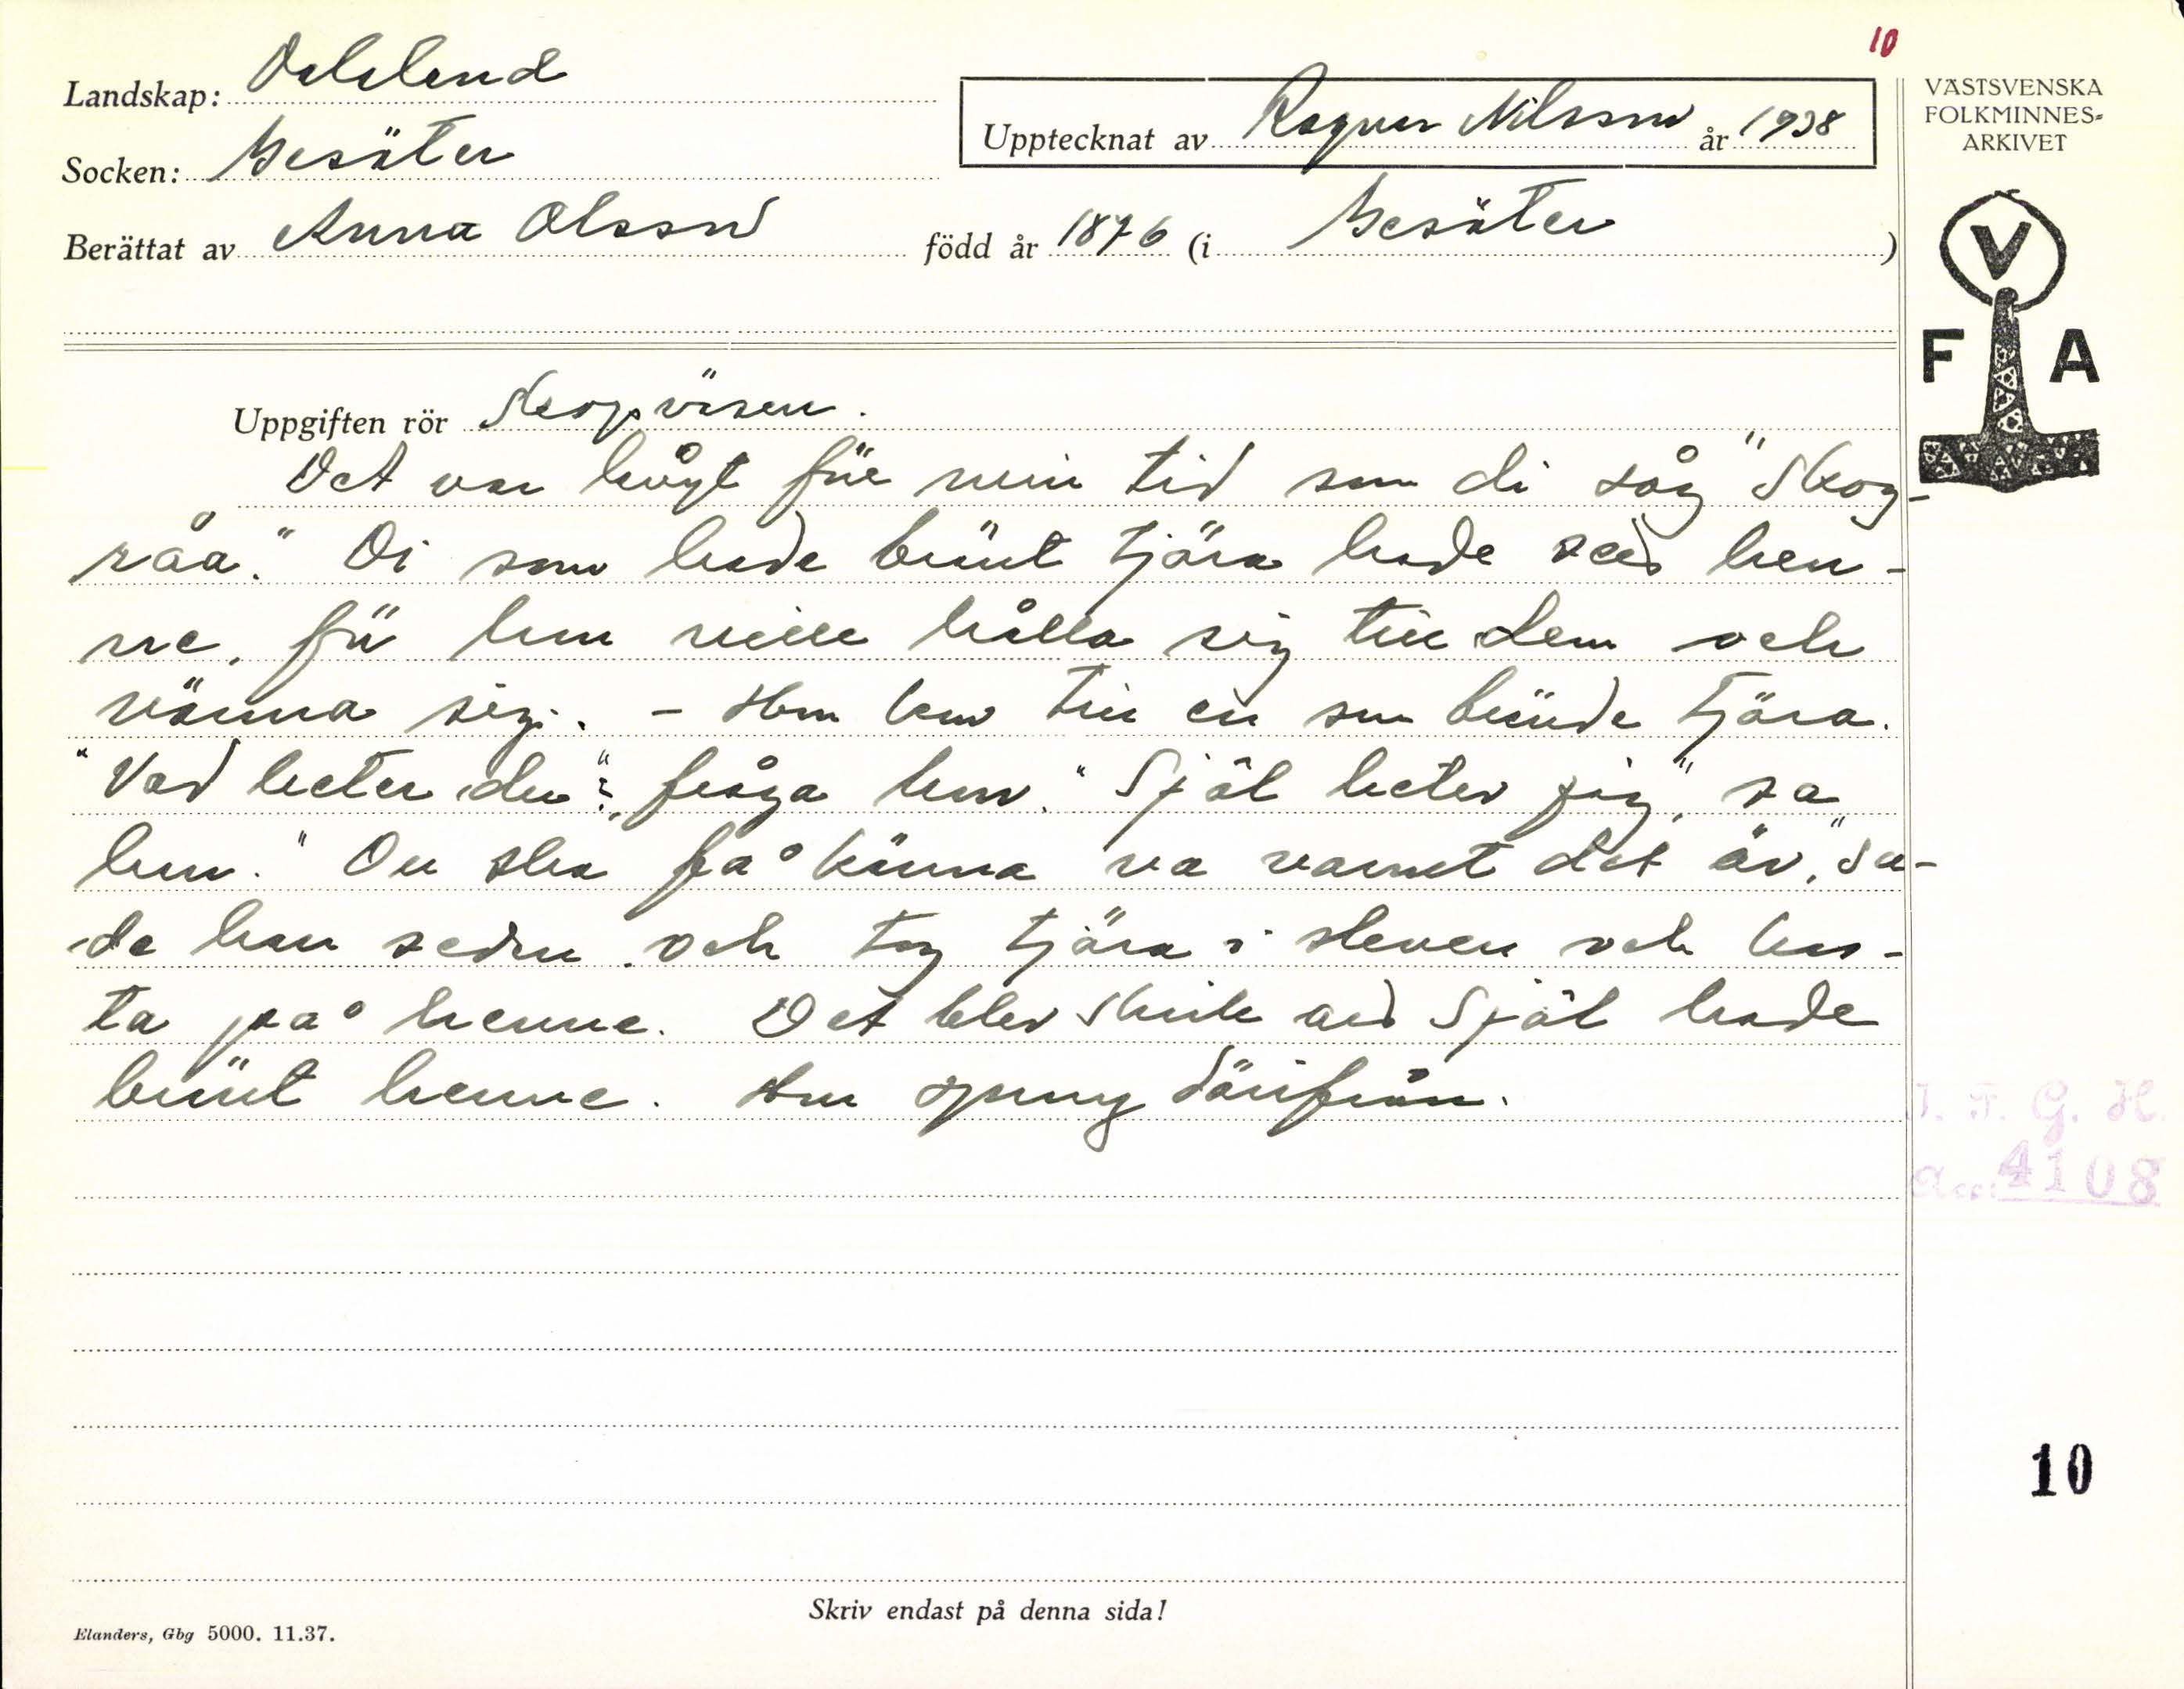 10
Landskap: Dalsland
VÄSTSVENSKA
FOLKMINNES-
ARKIVET
Upptecknat av Ragnar Nilsson år 1938
Socken: Gesäter
Berättat av Anna Olsson född år 1876 (i Gesäter)
V
F A
Uppgiften rör Skogsväsen.
Det var långt före min tid som di såg "Skog-
råa." Di som hade bränt tjära hade sett hen-
ne, för hon ville hålla sig till dem och
värma sig. - Hon kom till en som brände tjära.
"Vad heter du"?, fråga hon. "Själ heter jig", sa
han. "Du ska få känna va varmt det är," sa-
de han sedan och tog tjära i sleven och kas-
ta på henne. Det blev skrik att Själ hade
bränt henne. Hon sprang därifrån.
I. F. G. H.
Acc. 4108
10
Skriv endast på denna sida!
Elanders, Gbg 5000. 11.37.